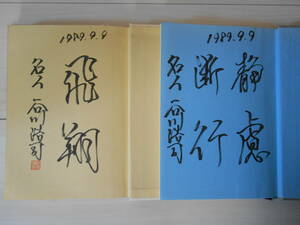 1989.9.9
飛翔
名人
石川浩司
1989.9.9
静慮
断行
名人
石川浩司